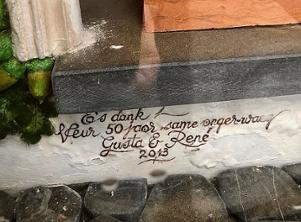 Es dank
Veur 50 jaor same onger-waeg
Gusta & René
2013